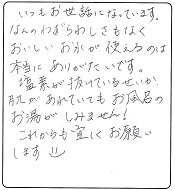 いつもお世話になっています。
なんのわずらわしさもなく
おいしいお水が使えるのは
本当にありがたいです。
塩素が抜けているせいか、
肌があれていてもお風呂の
お湯がしみません!
これからも宜しくお願い
します